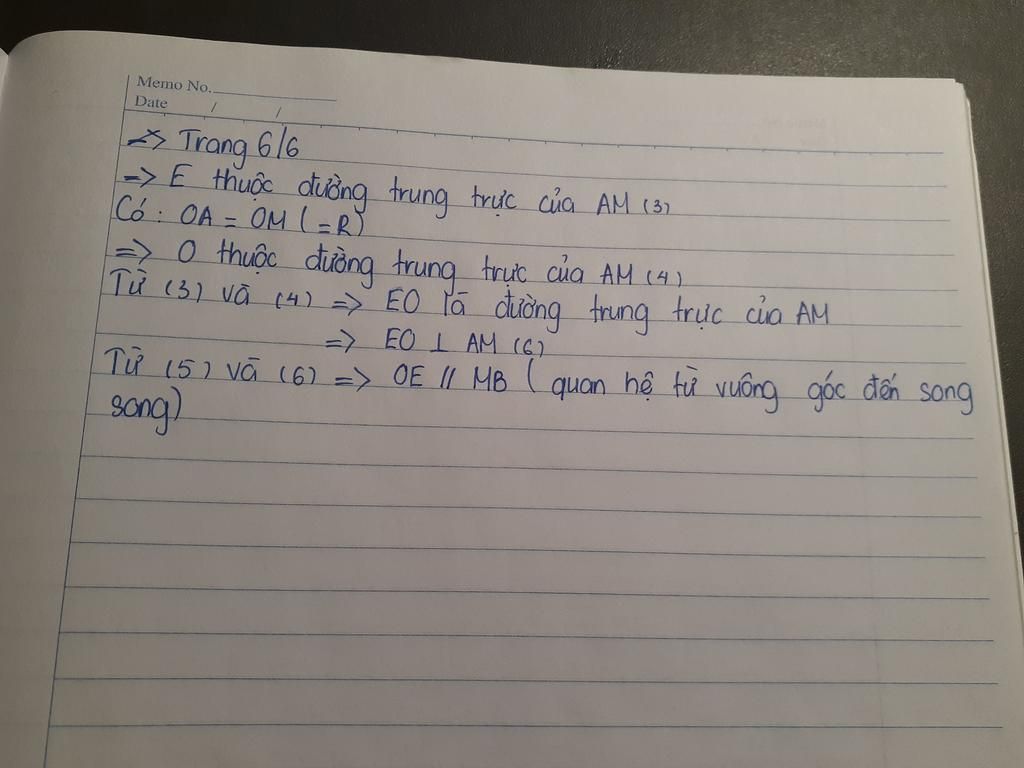 Memo No.
Date / /
=> Trang 6/6
=> E thuộc đường trung trực của AM (3)
Có: OA = OM (=R)
=> O thuộc đường trung trực của AM (4)
Từ (3) và (4) => EO là đường trung trực của AM
=> EO ⊥ AM (6)
Từ (5) và (6) => OE // MB ( quan hệ từ vuông góc đến song
song)